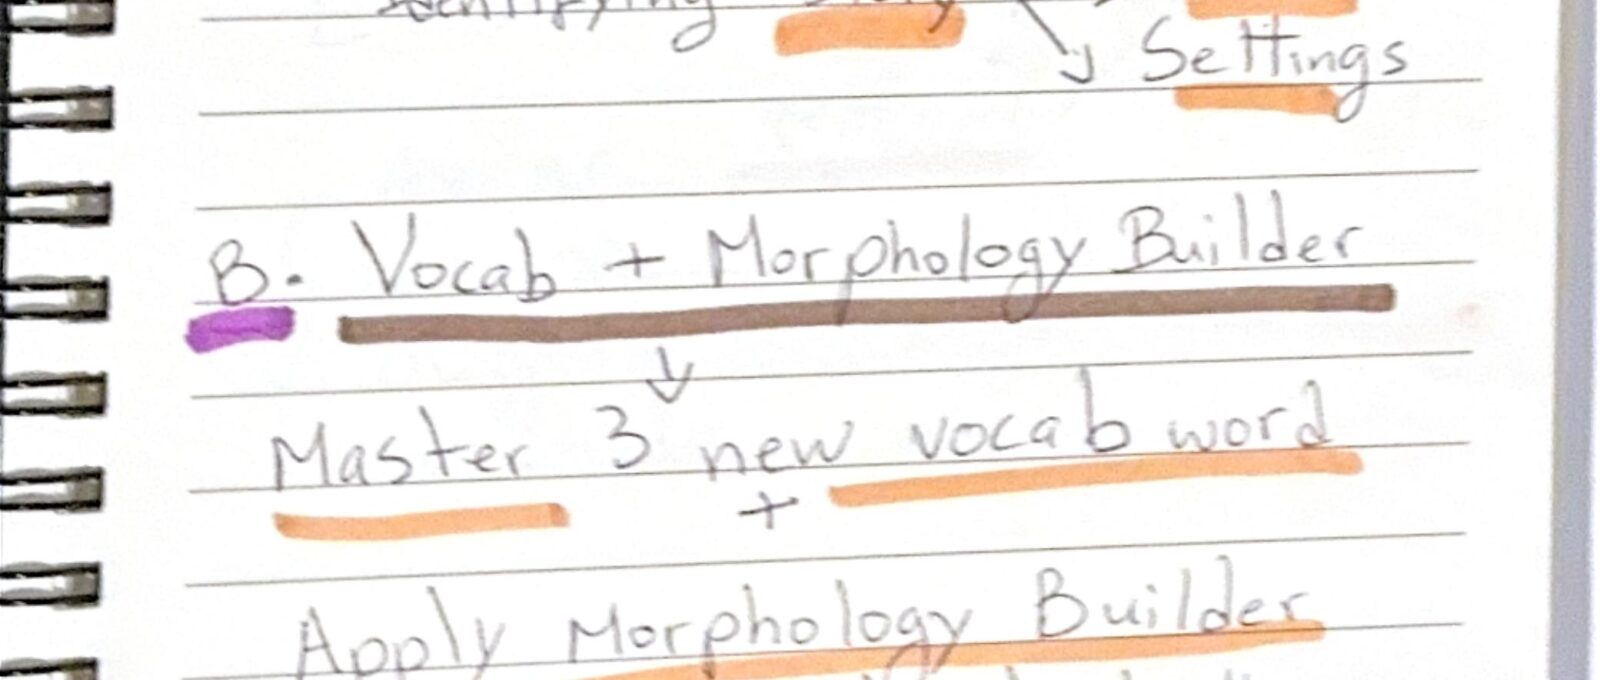 Identifying Story
↘ Settings
B. Vocab + Morphology Builder
↓
Master 3 new vocab word
+
Apply Morphology Builder